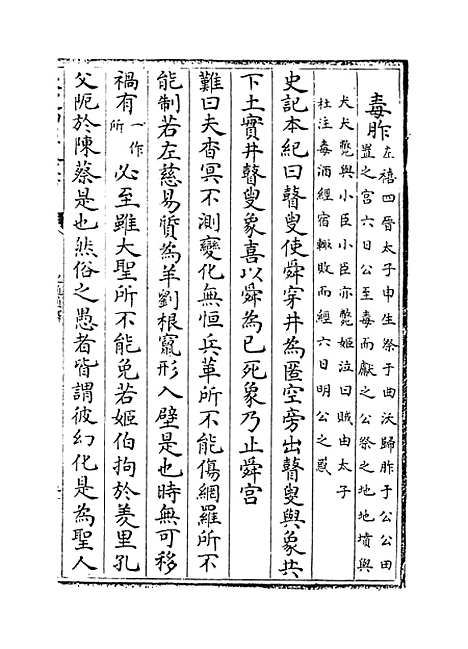 毒胙左禧四晉太子申生祭于曲沃歸胙于公公田
置之宮六日公至毒而獻之公祭之地地墳與
犬犬斃與小臣小臣亦斃姬泣曰賊由太子
杜注毒酒經宿輒敗而經六日明公之惑
史記本紀曰瞽叟使舜穿井為匿空旁出瞽叟與象共
下土實井瞽叟象喜以舜為已死象乃止舜宮
難曰夫杳冥不測變化無恒兵革所不能傷網羅所不
能制若左慈易質為羊劉根竄形入壁是也時無可移
禍有一作所必至雖大聖所不能免若姬伯拘於羑里孔
父阨於陳蔡是也然俗之愚者皆謂彼幻化是為聖人